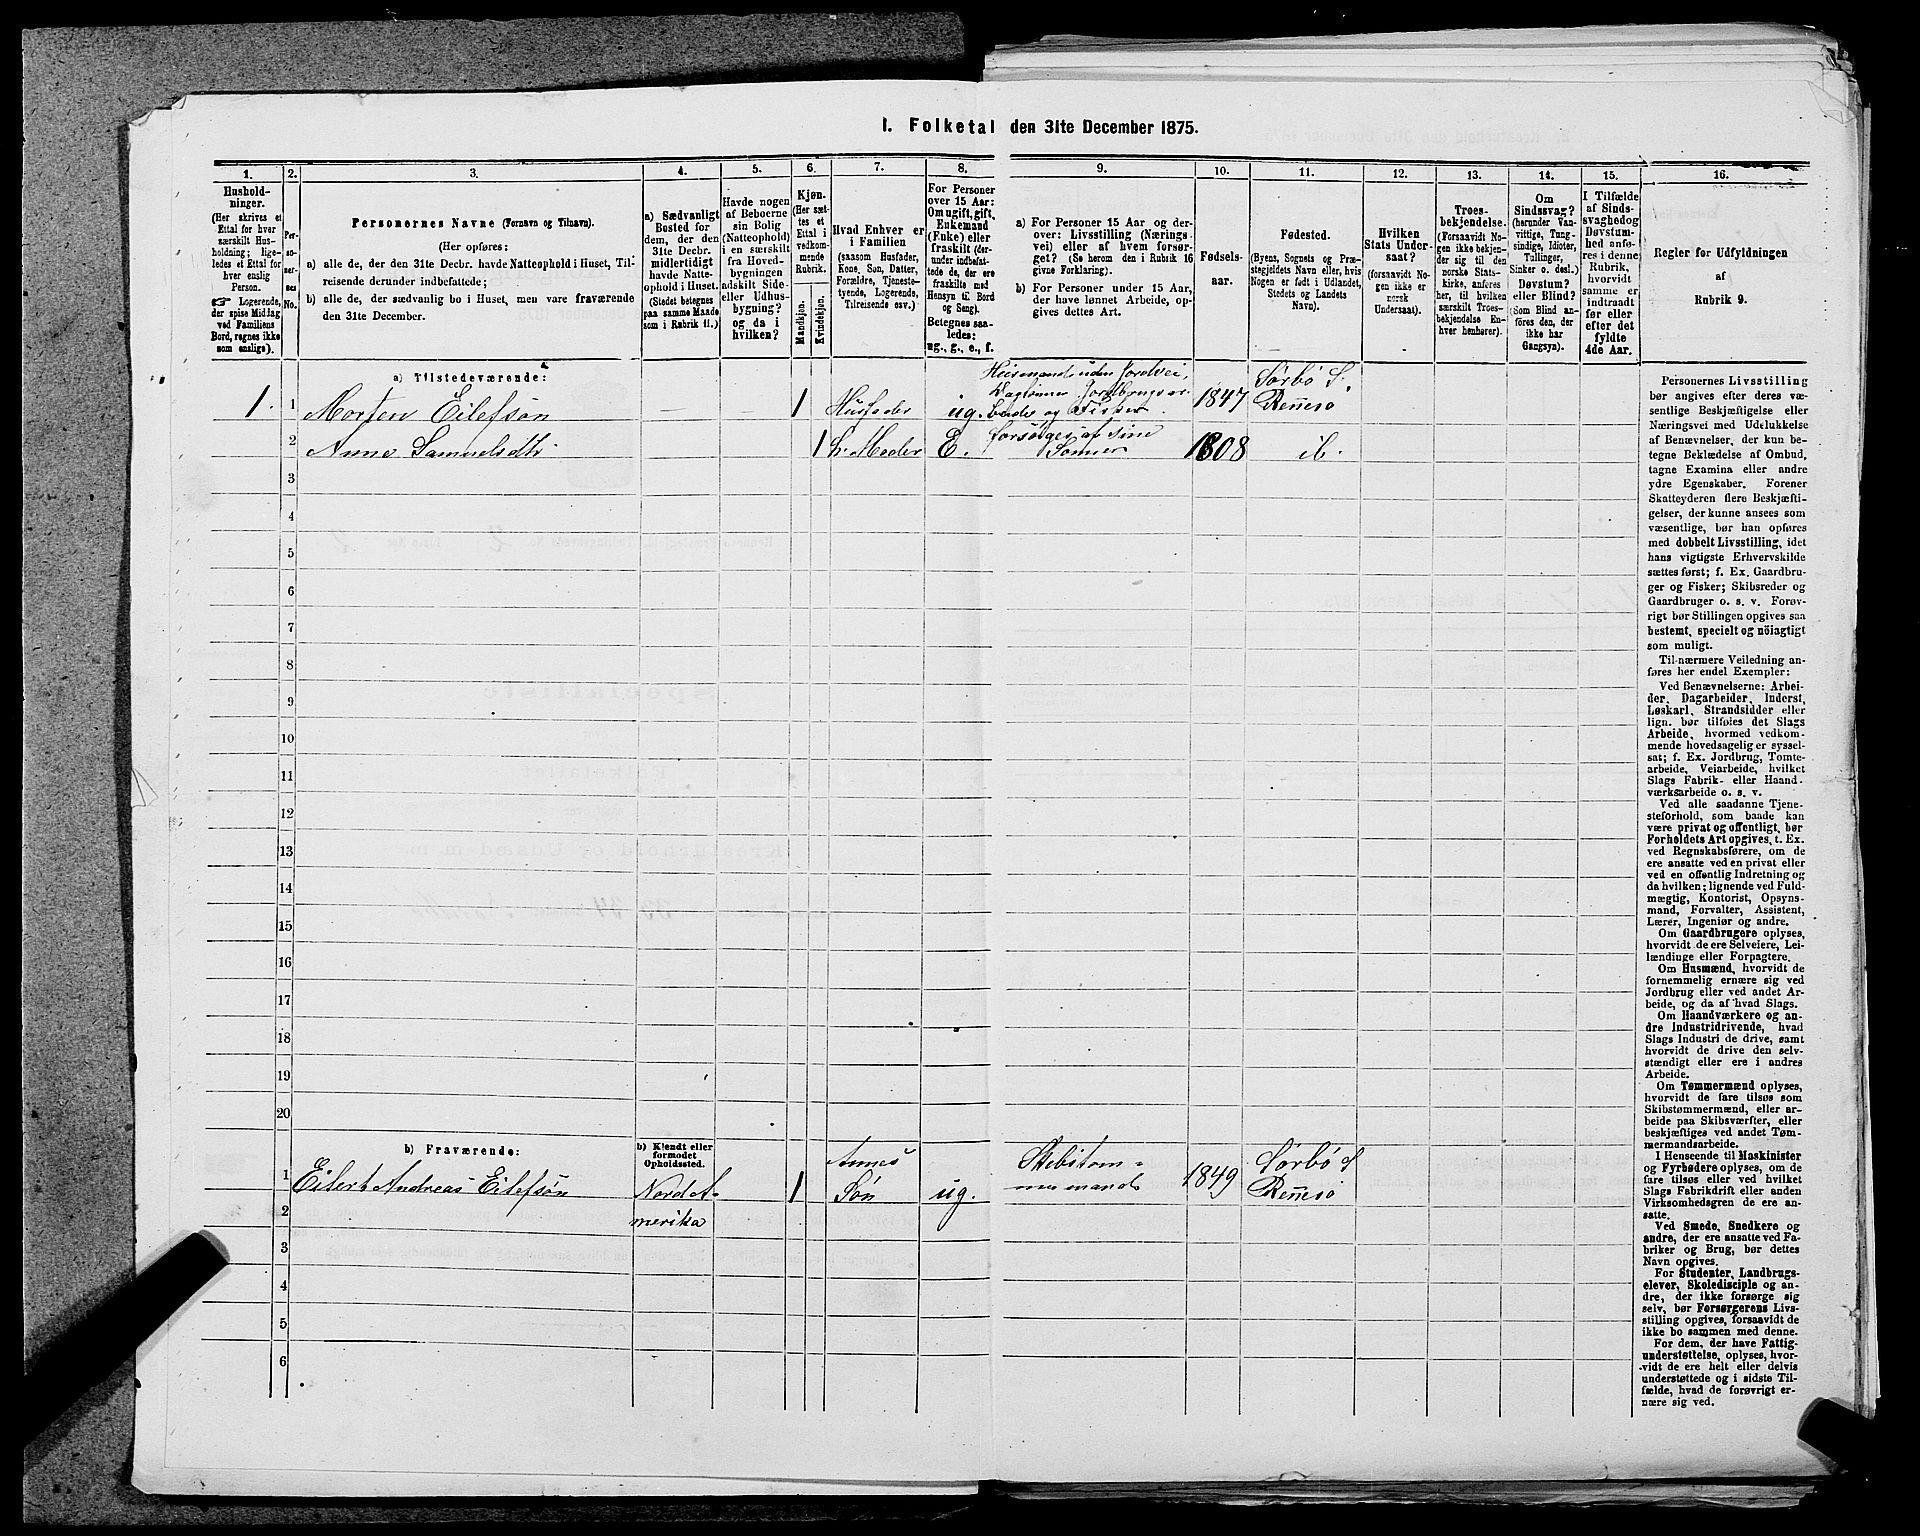 I. Folketal den 31te December 1875.
1.
Hushold-
ninger.
(Her skrives et
Ettal for hver
særskilt Hus-
holdning; lige-
ledes et Ettal for
hver enslig
Person.
Logerende,
der spise Middag
ved Familiens
Bord, regnes ikke
som enslige).
2.
Per-
so-
ner-
nes
No.
3.
Personernes Navne (Fornavn og Tilnavn).
(Her opføres:
a) alle de, der den 31te Decbr. havde Natteophold i Huset, Til-
reisende derunder indbefattede;
b) alle de, der sædvanlig bo i Huset, men vare fraværende
den 31te December.
4.
a) Sædvanligt
Bosted for
dem, der den
31te Decbr.
midlertidigt
havde Natte-
ophold i Huset.
(Stedet betegnes
paa samme Maade
som i Rubrik 11.)
5.
Havde nogen
af Beboerne
sin Bolig
(Natteophold)
i en særskilt
fra Hoved-
bygningen
adskilt Side-
eller Udhus-
bygning?
og da i
hvilken?
6.
Kjøn.
(Her sæt-
tes et
Ettal i
vedkom-
mende
Rubrik.
Mandkjøn.
Kvindekjøn.
7.
Hvad Enhver er
i Familien
(saasom Husfader,
Kone, Søn, Datter,
Forældre, Tjeneste-
tyende, Logerende,
Tilreisende osv.)
8.
For Personer
over 15 Aar:
Om ugift, gift,
Enkemand
(Enke) eller
fraskilt (der-
under indbefat-
tede de, der ere
fraskilte med
Hensyn til Bord
og Seng).
Betegnes saa-
ledes:
ug., g., e., f.
9.
a) For Personer 15 Aar og der-
over: Livsstilling (Nærings-
vei) eller af hvem forsør-
get? (Se herom den i Rubrik 16
givne Forklaring).
b) For Personer under 15 Aar,
der have lønnet Arbeide, op-
gives dettes Art.
10.
Fødsels-
aar.
11.
Fødested.
(Byens, Sognets og Præ-
stegjeldets Navn eller, hvis
Nogen er født i Udlandet,
Stedets og Landets
Navn).
12.
Hvilken
Stats Under-
saat?
(forsaavidt No-
gen ikke er
norsk
Undersaat).
13.
Troes-
bekjendelse.
(Forsaavidt No-
gen ikke bekjen-
der sig til den
norske Stats-
kirke, anføres
her, til hvilken
særskilt Troes-
bekjendelse En-
hver henhører).
14.
Om
Sindssvag?
(herunder Van-
vittige, Tung-
sindige, Idioter,
Tullinger,
Sinker o. desl.)
Døvstum?
eller Blind?
(Som Blind an-
føres den, der
ikke har
Gangsyn).
15.
I Tilfælde
af Sinds-
svaghed og
Døvstum-
hed anfø-
res i denne
Rubrik,
hvorvidt
samme er
indtraadt
før eller
efter det
fyldte
4de Aar.
16.
Regler for Udfyldningen
af
Rubrik 9.
a) Tilstedeværende:
1. 1 Morten Eilefsøn — — 1 Husfader ug. Huusmand uden Jordvei, Daglønner Jordbrugsar beider og Fisker 1847 Sørbö S. Rennesö
2 Anne Samuelsdtr 1 h. Moder E. forsørges af sine Sønner 1808 ib.
3
4
5
6
7
8
9
10
11
12
13
14
15
16
17
18
19
20
b) Fraværende:
b) Kjendt eller
formodet
Opholdssted.
1 Eilert Andreas Eilefsøn Nord A- merika 1 Annes Søn ug. Skibstøm- mermand 1849 Sörbö S Rennesö
2
3
4
5
6
Personernes Livsstilling
bør angives efter deres væ-
sentlige Beskjæftigelse eller
Næringsvei med Udelukkelse
af Benævnelser, der kun be-
tegne Beklædelse af Ombud,
tagne Examina eller andre
ydre Egenskaber. Forener
Skatteyderen flere Beskjæfti-
gelser, der kunne ansees som
væsentlige, bør han opføres
med dobbelt Livsstilling, idet
hans vigtigste Erhvervskilde
sættes først; f. Ex. Gaardbru-
ger og Fisker; Skibsreder og
Gaardbruger o. s. v. Forøv-
rigt bør Stillingen opgives saa
bestemt, specielt og nöiagtigt
som muligt.
Til nærmere Veiledning an-
føres her endel Exempler:
Ved Benævnelserne: Arbei-
der, Dagarbeider, Inderst,
Løskarl, Strandsidder eller
lign. bør tilføies det Slags
Arbeide, hvormed vedkom-
mende hovedsagelig er syssel-
sat; f. Ex. Jordbrug, Tomte-
arbeide, Veiarbeide, hvilket
Slags Fabrik- eller Haand-
værksarbeide o. s. v.
Ved alle saadanne Tjene-
steforhold, som baade kan
være privat og offentligt, bør
Forholdets Art opgives, t. Ex.
ved Regnskabsførere, om de
ere ansatte ved en privat eller
ved en offentlig Indretning og
da hvilken; lignende ved Fuld-
mægtig, Kontorist, Opsyns-
mand, Forvalter, Assistent,
Lærer, Ingeniør og andre.
Om Gaardbrugere oplyses,
hvorvidt de ere Selveiere, Lei-
lændinge eller Forpagtere.
Om Husmænd, hvorvidt de
fornemmelig ernære sig ved
Jordbrug eller ved andet Ar-
beide, og da af hvad Slags.
Om Haandværkere og an-
dre Industridrivende, hvad
Slags Industri de drive, samt
hvorvidt de drive den selv-
stændigt eller ere i andres
Arbeide.
Om Tømmermænd oplyses,
hvorvidt de fare tilsøs som
Skibstømmermænd, eller ar-
beide paa Skibsværfter, eller
beskjæftiges ved andet Tøm-
mermandsarbeide.
I Henseende til Maskinister
og Fyrbødere oplyses, om de
fare tilsøs eller ved hvilket
Slags Fabrikdrift eller anden
Virksomhedsgren de ere an-
satte.
Ved Smede, Snedkere og
andre, der ere ansatte ved Fa-
briker og Brug, bør dettes
Navn opgives.
For Studenter, Landbrugs-
elever, Skoledisciple og an-
dre, der ikke forsørge sig
selv, bør Forsørgerens Livs-
stilling opgives, forsaavidt de
ikke bo sammen med denne.
For dem, der have Fattig-
understøttelse, oplyses, hvor-
vidt de ere helt eller delvis
understøttede og i sidste Til-
fælde, hvad de forøvrigt er-
nære sig ved.